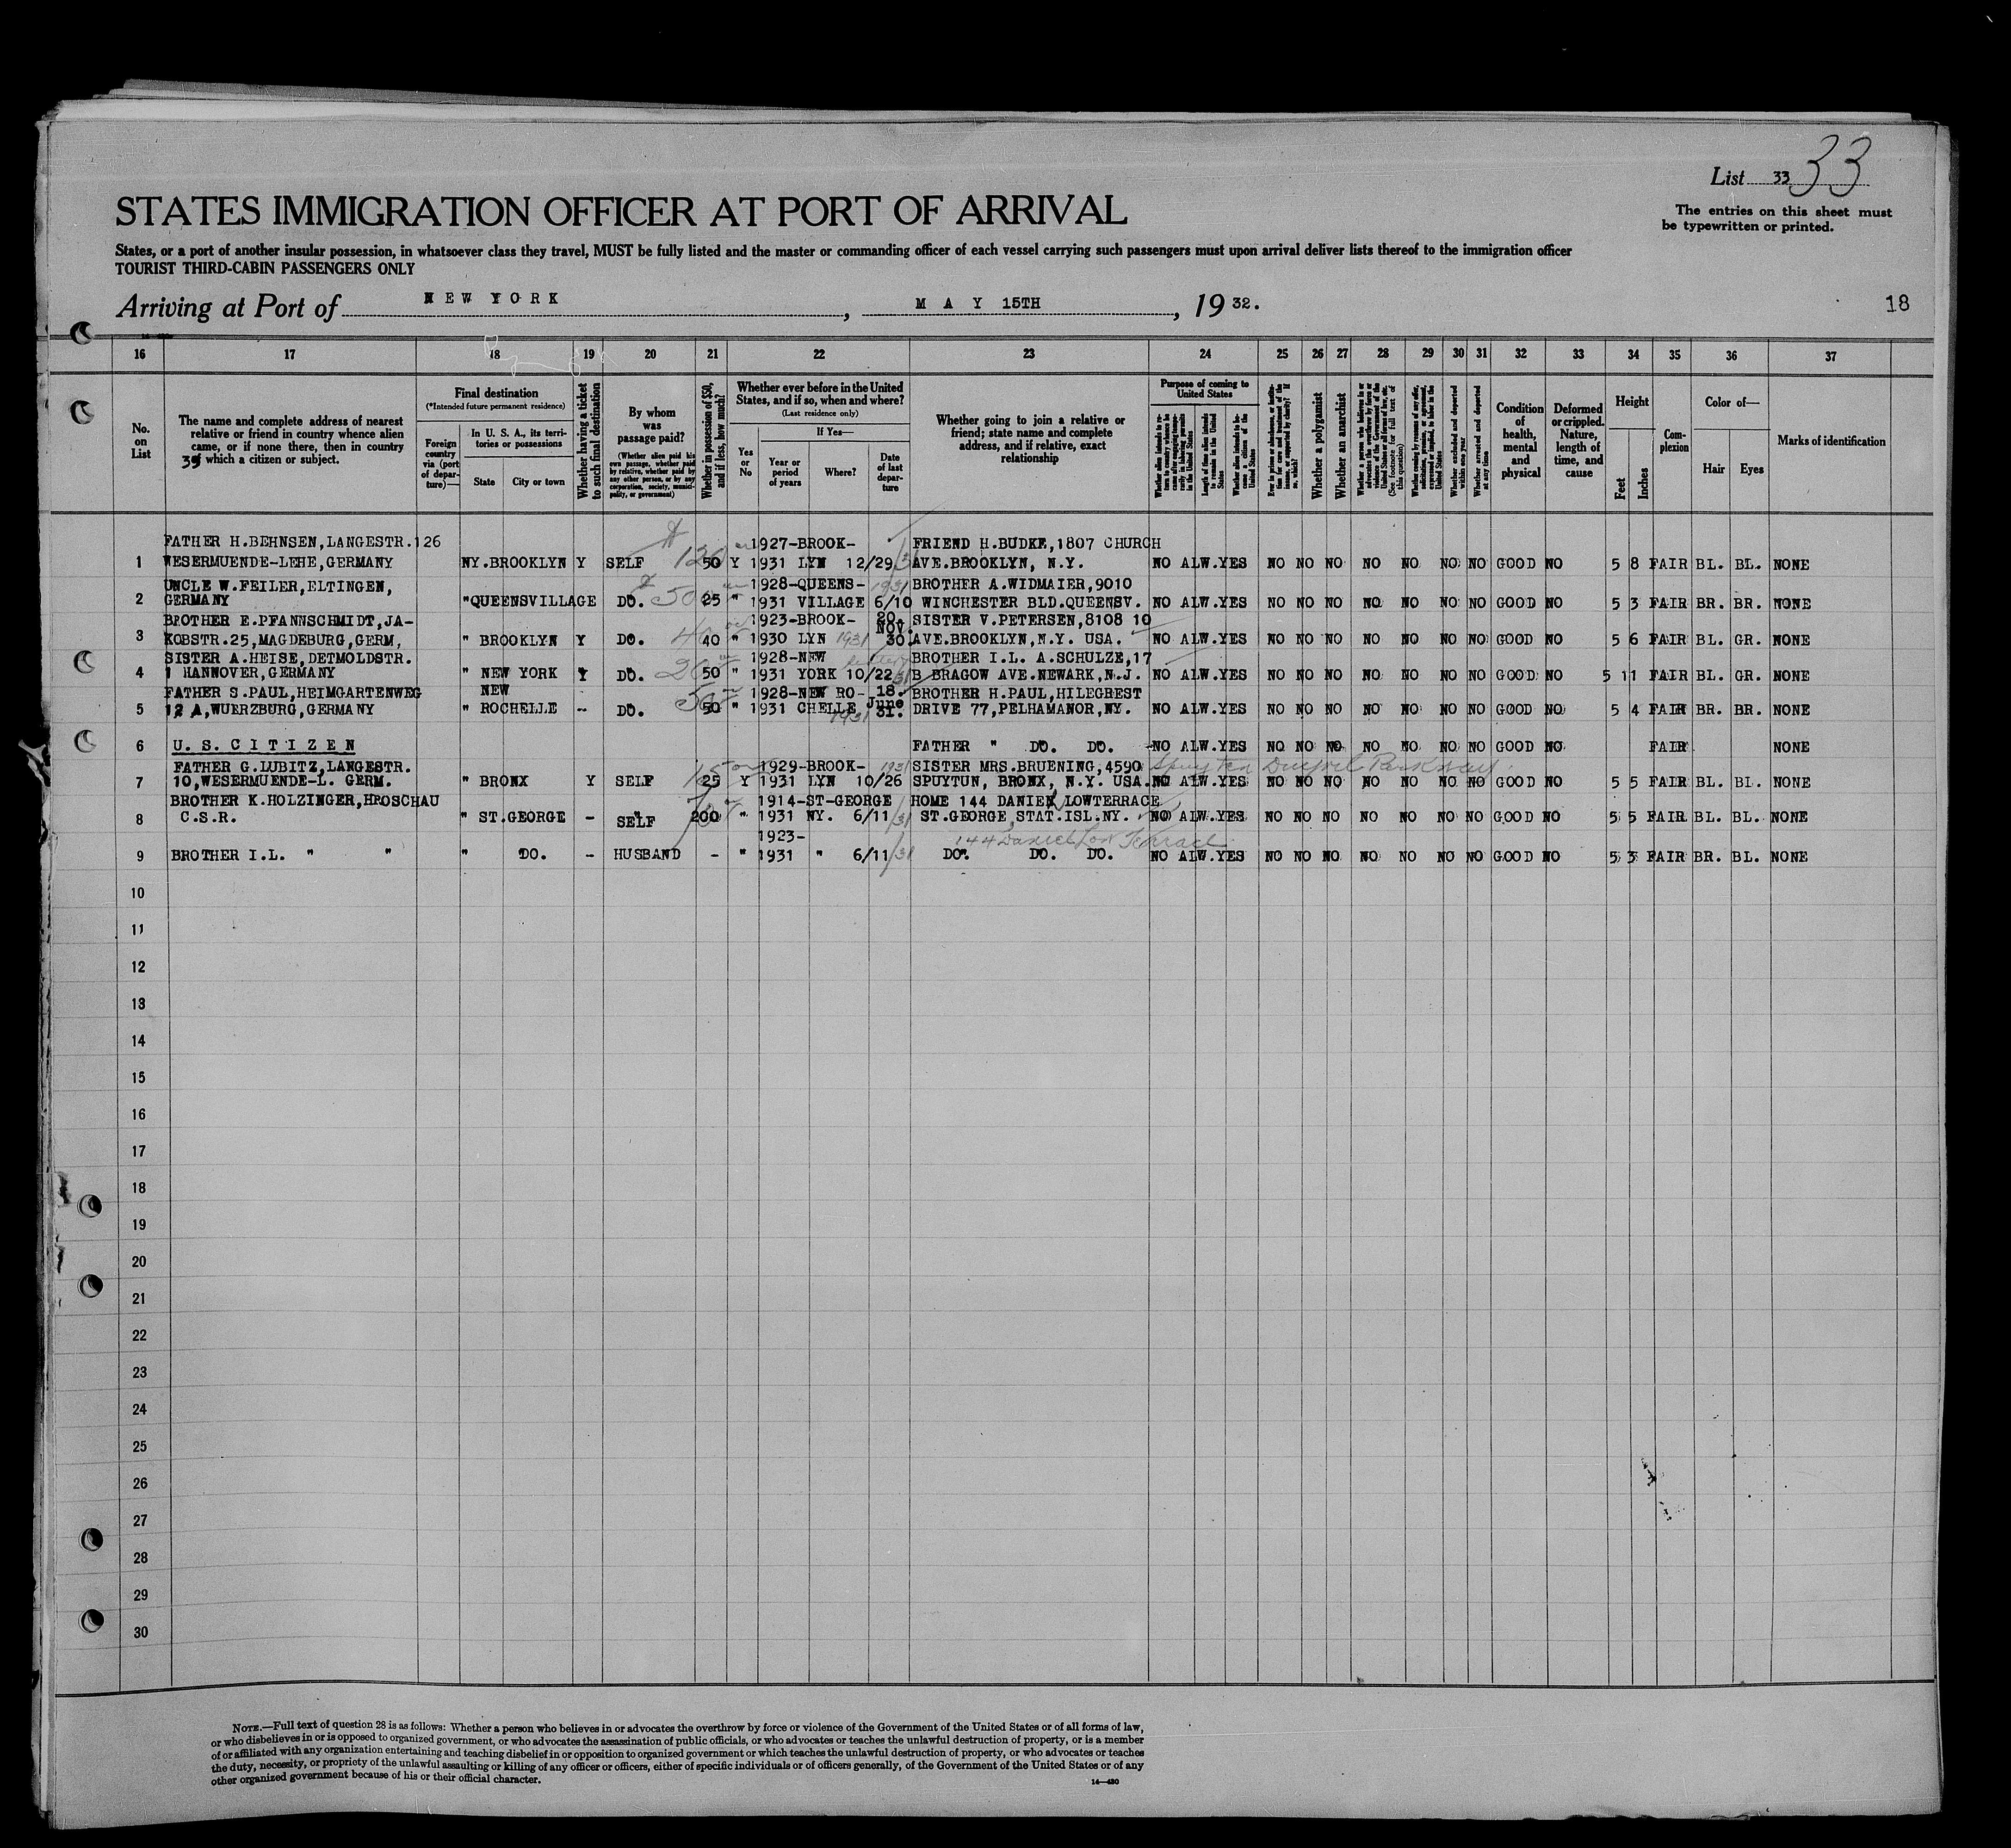 List 33 33
STATES IMMIGRATION OFFICER AT PORT OF ARRIVAL
The entries on this sheet must
be typewritten or printed.
States, or a port of another insular possession, in whatsoever class they travel, MUST be fully listed and the master or commanding officer of each vessel carrying such passengers must upon arrival deliver lists thereof to the immigration officer
TOURIST THIRD-CABIN PASSENGERS ONLY
Arriving at Port of NEW YORK, MAY 15TH, 19 32.
18
16 17 18 19 20 21 22 23 24 25 26 27 28 29 30 31 32 33 34 35 36 37
No.
on
List
The name and complete address of nearest
relative or friend in country whence alien
came, or if none there, then in country
which a citizen or subject.
Final destination
(*Intended future permanent residence)
Foreign
country
via (port
of depar-
ture)—
In U. S. A., its terri-
tories or possessions
State City or town
Whether having a ticket
to such final destination
By whom
was
passage paid?
(Whether alien paid his
own passage, whether paid
by relative, whether paid by
any other person, or by any
corporation, society, munici-
pality, or government)
Whether in possession of $50,
and if less, how much?
Whether ever before in the United
States, and if so, when and where?
(Last residence only)
Yes
or
No
If Yes—
Year or
period
of years
Where?
Date
of last
depar-
ture
Whether going to join a relative or
friend; state name and complete
address, and if relative, exact
relationship
Purpose of coming to
United States
Whether alien intends to re-
turn to country whence he
came after engaging tempo-
rarily in laboring pursuits
in the United States
Length of time alien intends
to remain in the United
States
Whether alien intends to be-
come a citizen of the
United States
Ever in prison or almshouse, or institu-
tion for care and treatment of the
insane, or supported by charity? If
so, which?
Whether a polygamist
Whether an anarchist
(See footnote for full text of
this question)
Whether excluded and deported
within one year
Whether arrested and deported
at any time
Condition
of
health,
mental
and
physical
Deformed
or crippled.
Nature,
length of
time, and
cause
Height
Feet
Inches
Com-
plexion
Color of—
Hair Eyes
Marks of identification
FATHER H.BEHNSEN,LANGESTR.126 1927-BROOK- FRIEND H.BUDKE,1807 CHURCH
1 WESERMUENDE-LEHE,GERMANY NY.BROOKLYN Y SELF 120 50 Y 1931 LYN 12/29/31 AVE.BROOKLYN, N.Y. NO ALW.YES NO NO NO NO NO NO NO GOOD NO 5 8 FAIR BL. BL. NONE
UNCLE W.FEILER,ELTINGEN, 1928-QUEENS- 1931 BROTHER A.WIDMAIER,9010
2 GERMANY "QUEENSVILLAGE DO. 50 25 " 1931 VILLAGE 6/10 WINCHESTER BLD.QUEENSV. NO ALW.YES NO NO NO NO NO NO NO GOOD NO 5 3 FAIR BR. BR. NONE
BROTHER E.PFANNSCHMIDT,JA- 1923-BROOK- 20. NOV. SISTER V.PETERSEN,8108 10
3 KOBSTR.25,MAGDEBURG,GERM, " BROOKLYN Y DO. 40 " 1930 LYN 1931 30. AVE.BROOKLYN,N.Y. USA. NO ALW.YES NO NO NO NO NO NO NO GOOD NO 5 6 FAIR BL. GR. NONE
SISTER A.HEISE,DETMOLDSTR. 1928-NEW BROTHER I.L. A.SCHULZE,17
4 1 HANNOVER,GERMANY " NEW YORK Y DO. 50 " 1931 YORK 10/22/31 B BRAGOW AVE.NEWARK,N.J. NO ALW.YES NO NO NO NO NO NO NO GOOD NO 5 11 FAIR BL. GR. NONE
FATHER S.PAUL,HEIMGARTENWEG NEW 1928-NEW RO- 18. June BROTHER H.PAUL,HILEGREST
5 12 A,WUERZBURG,GERMANY " ROCHELLE - DO. 50 50 " 1931 CHELLE 1931 31. DRIVE 77,PELHAMANOR,NY. NO ALW.YES NO NO NO NO NO NO NO GOOD NO 5 4 FAIR BR. BR. NONE
6 U.S.CITIZEN FATHER " DO. DO. -NO ALW.YES NO NO NO NO NO NO NO GOOD NO FAIR NONE
FATHER G.LUBITZ,LANGESTR. 1929-BROOK- 1931 SISTER MRS.BRUENING,4590 Spuyten Duyvil Parkway
7 10,WESERMUENDE-L. GERM. " BRONX Y SELF 25 Y 1931 LYN 10/26 SPUYTUN, BRONX, N.Y. USA. NO ALW.YES NO NO NO NO NO NO NO GOOD NO 5 5 FAIR BL. BL. NONE
BROTHER K.HOLZINGER,HROSCHAU 1914-ST-GEORGE HOME 144 DANIEL LOWTERRACE
8 C.S.R. " ST.GEORGE - SELF 200 " 1931 NY. 6/11/31 ST.GEORGE,STAT.ISL.NY. NO ALW.YES NO NO NO NO NO NO NO GOOD NO 5 5 FAIR BL. BL. NONE
1923- 144 Daniel Low Terrace
9 BROTHER I.L. " " " DO. - HUSBAND - " 1931 " 6/11/31 DO. DO. DO. NO ALW.YES NO NO NO NO NO NO NO GOOD NO 5 3 FAIR BR. BL. NONE
10
11
12
13
14
15
16
17
18
19
20
21
22
23
24
25
26
27
28
29
30
NOTE.—Full text of question 28 is as follows: Whether a person who believes in or advocates the overthrow by force or violence of the Government of the United States or of all forms of law,
or who disbelieves in or is opposed to organized government, or who advocates the assassination of public officials, or who advocates or teaches the unlawful destruction of property, or is a member
of or affiliated with any organization entertaining and teaching disbelief in or opposition to organized government or which teaches the unlawful destruction of property, or who advocates or teaches
the duty, necessity, or propriety of the unlawful assaulting or killing of any officer or officers, either of specific individuals or of officers generally, of the Government of the United States or of any
other organized government because of his or their official character.
14—430